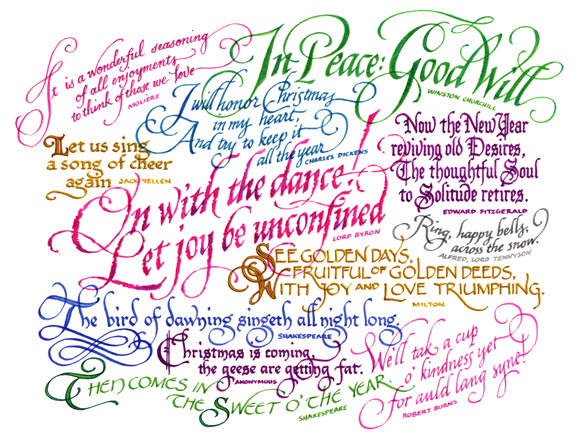 It is a wonderful seasoning
of all enjoyments
to think of those we love
MOLIÈRE
In Peace: Good Will
WINSTON CHURCHILL
I will honor Christmas
in my heart,
And try to keep it
all the year
CHARLES DICKENS
Let us sing
a song of cheer
again
JACK YELLEN
Now the New Year
reviving old Desires,
The thoughtful Soul
to Solitude retires.
EDWARD FITZGERALD
On with the dance!
Let joy be unconfined
LORD BYRON
Ring, happy bells,
across the snow.
ALFRED, LORD TENNYSON
SEE GOLDEN DAYS,
FRUITFUL OF GOLDEN DEEDS,
WITH JOY AND LOVE TRIUMPHING.
MILTON
The bird of dawning singeth all night long.
SHAKESPEARE
Christmas is coming,
the geese are getting fat.
ANONYMOUS
We'll tak a cup
o' kindness yet
for auld lang syne!
ROBERT BURNS
THEN COMES IN
THE SWEET O' THE YEAR
SHAKESPEARE